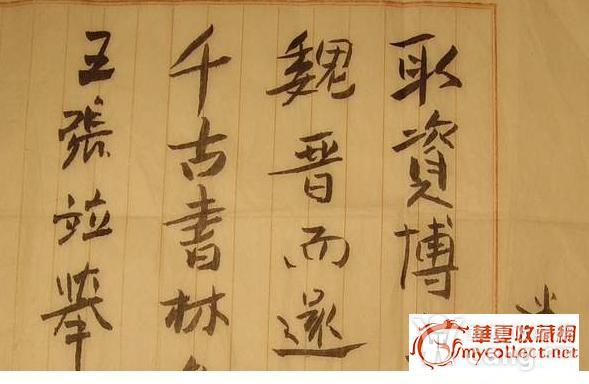 取資博
魏晋而還
千古書林
五張並舉
華夏收藏網
mycollect.net